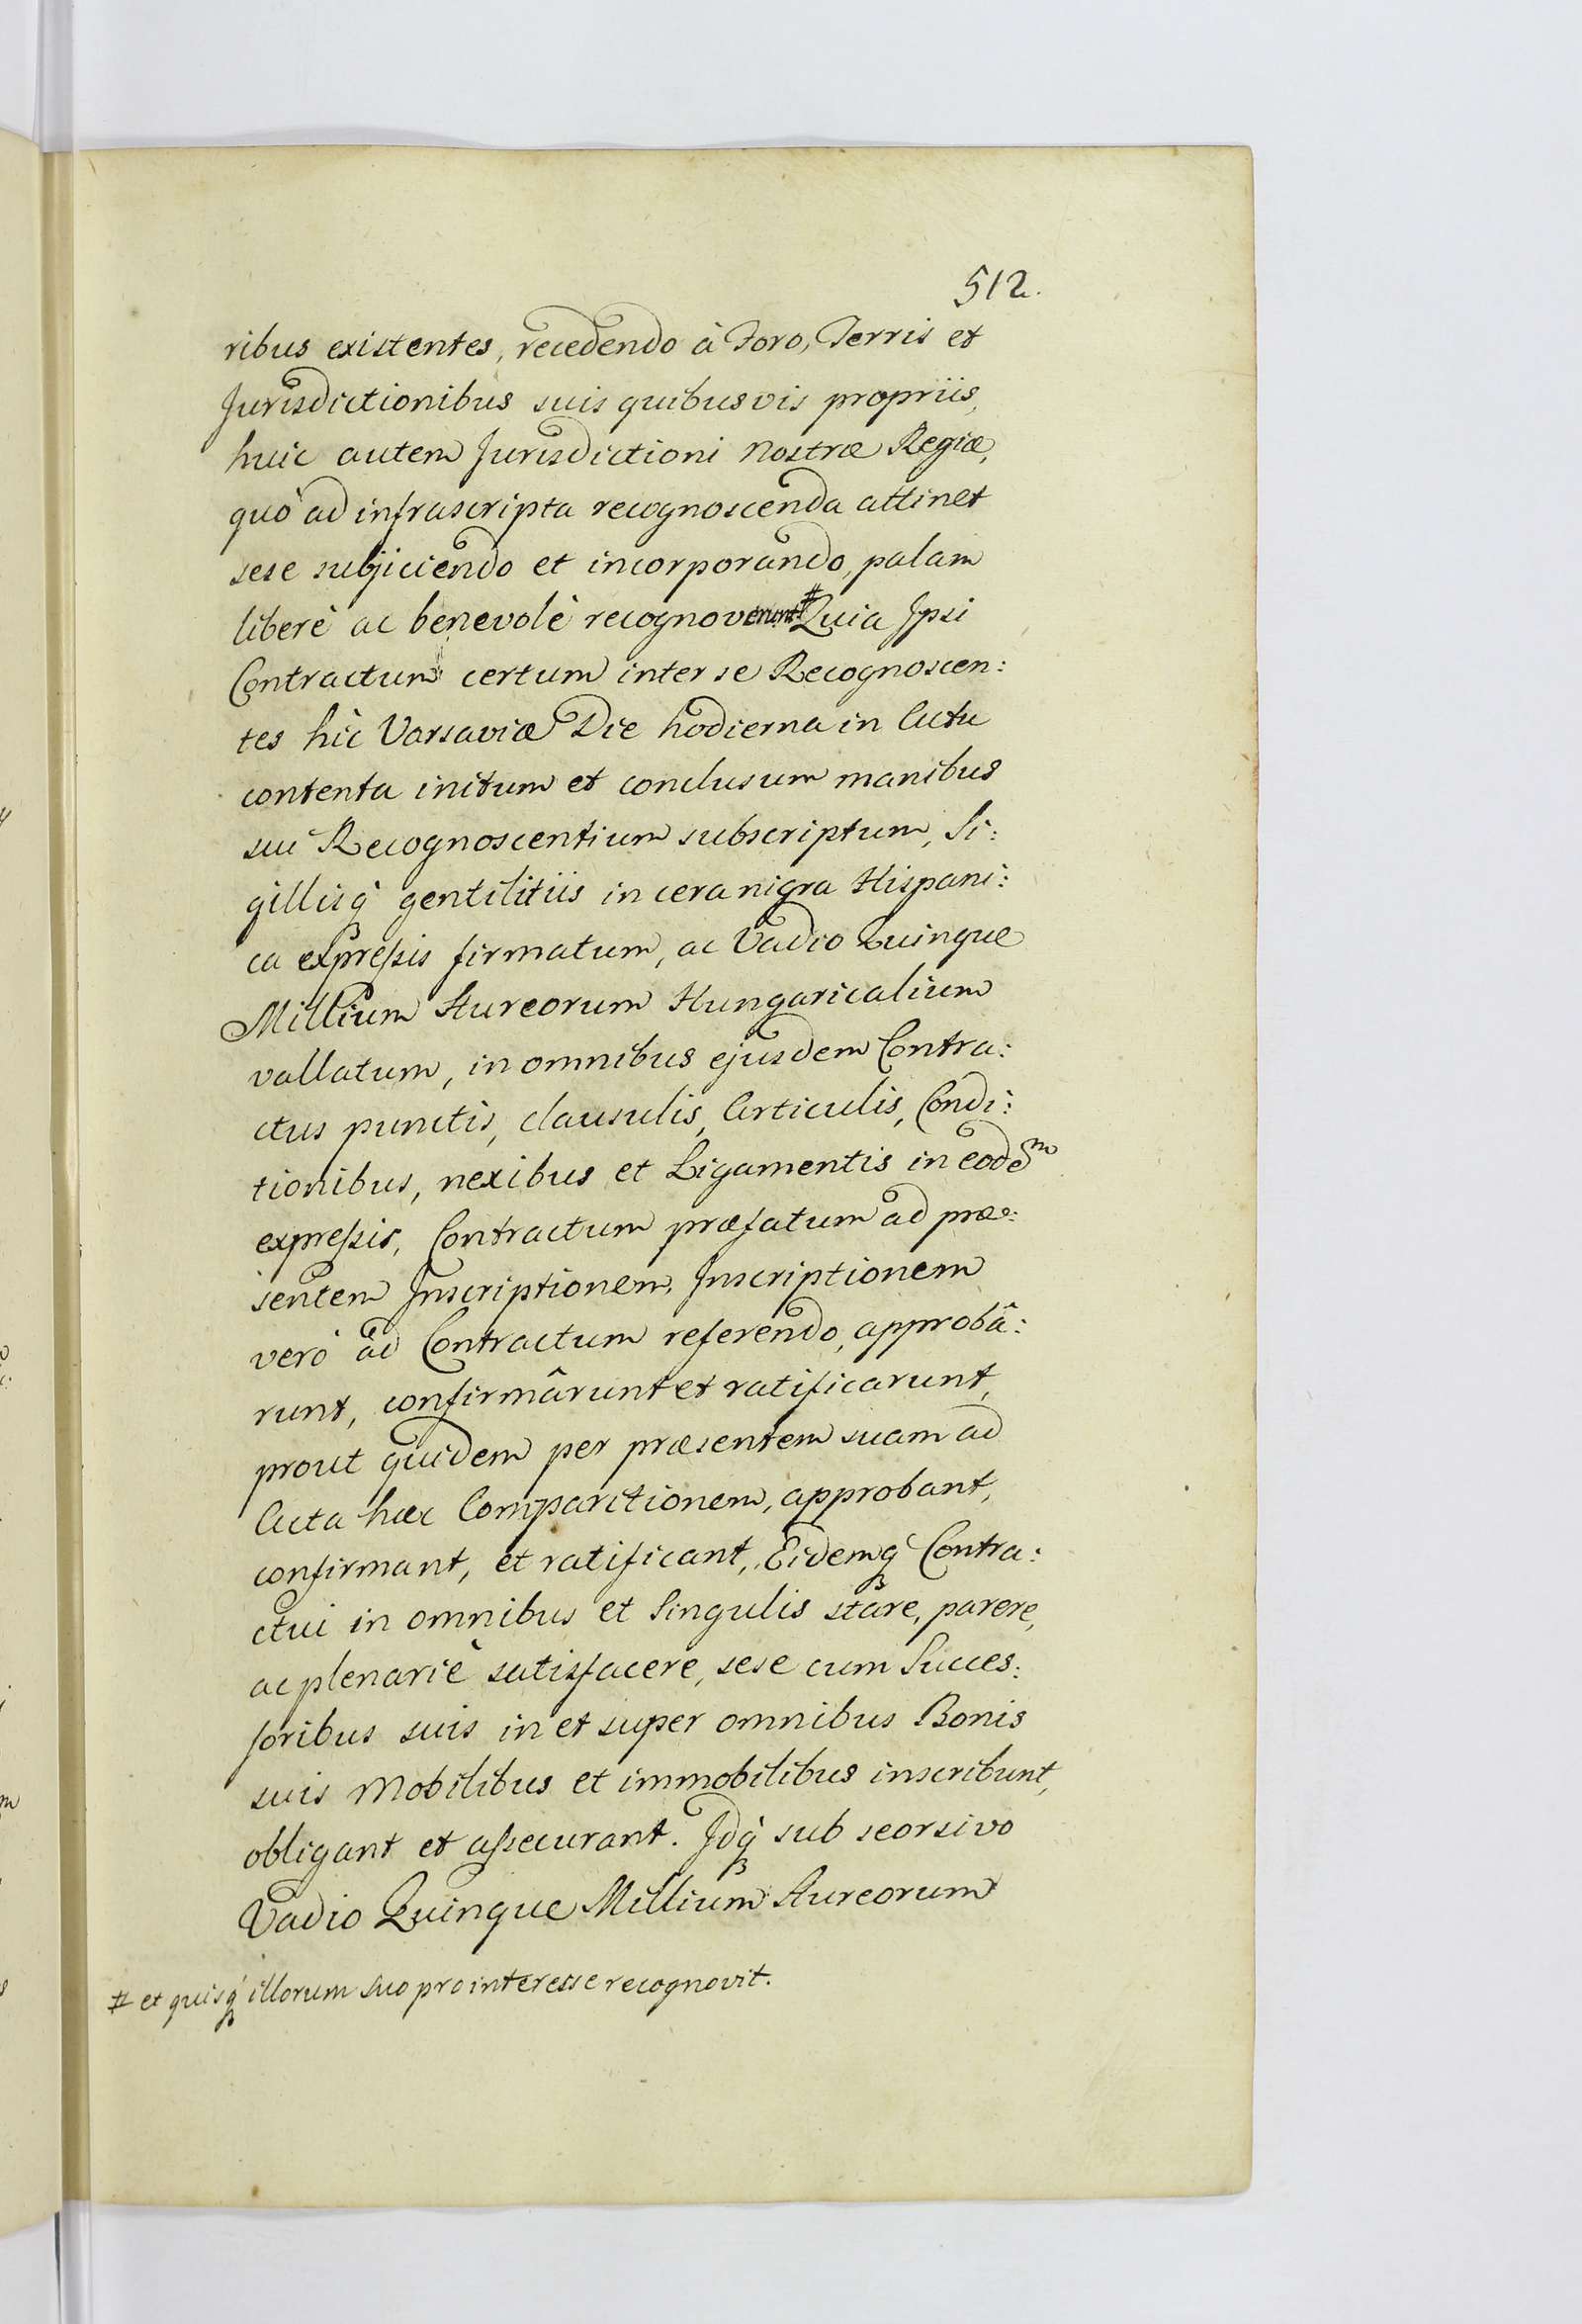 512.
ribus existentes, recedendo à Foro, Terris et
Jurisdictionibus suis quibusvis propriis,
huic autem Jurisdictioni Nostræ Regiæ,
quò ad infrascripta recognoscenda attinet
sese subjiciendo et incorporando, palam
liberè ac benevolè recognoverunt # Quia Ipsi
Contractum certum inter se Recognoscen:
tes hìc Varsaviæ Die hodierna in Actu
contenta initum et conclusum manibus
sui Recognoscentium subscriptum, Si:
gillisq́ gentilitiis in cera nigra Hispani:
ca expreſsis firmatum, ac Vadio Quinque
Millium Aureorum Hungaricalium
vallatum, in omnibus ejusdem Contra:
ctus punctis, clausulis, Articulis, Condi:
tionibus, nexibus et Ligamentis in eodem
expreſsis, Contractum præfatum ad præ:
sentem Inscriptionem, Inscriptionem
verò ad Contractum referendo, approbâ:
runt, confirmârunt et ratificarunt,
prout quidem per præsentem suam ad
Acta hæc Comparitionem, approbant,
confirmant, et ratificant, Eidemq́ Contra:
ctui in omnibus et Singulis stare, parere,
ac plenariè satisfacere, sese cum Succes:
soribus suis in et super omnibus Bonis
suis Mobilibus et immobilibus inscribunt,
obligant et aſsecurant. Idq́ sub seorsivo
Vadio Quinque Millium Aureorum
# et quisq́ illorum suo pro interesse recognovit.